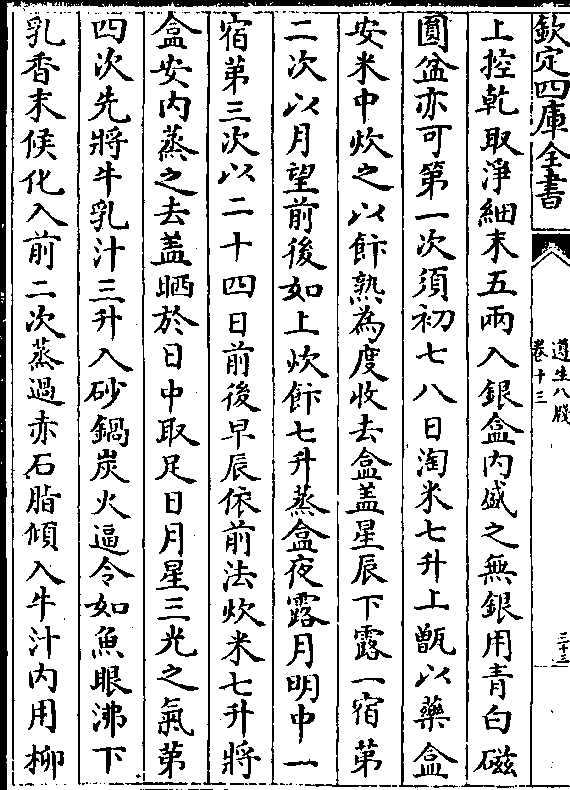 欽定四庫全書
遵生八牋
卷十三
三十三
上控乾取淨細末五兩入銀盒內盛之無銀用青白磁
圓盆亦可第一次須初七八日淘米七升上甑以藥盒
安米中炊之以飰熟為度收去盒盖星辰下露一宿第
二次以月望前後如上炊飰七升蒸盒夜露月明中一
宿第三次以二十四日前後早辰依前法炊米七升將
盒安內蒸之去盖晒於日中取足日月星三光之氣第
四次先將牛乳汁三升入砂鍋炭火逼令如魚眼沸下
乳香末候化入前二次蒸過赤石脂傾入牛汁內用柳